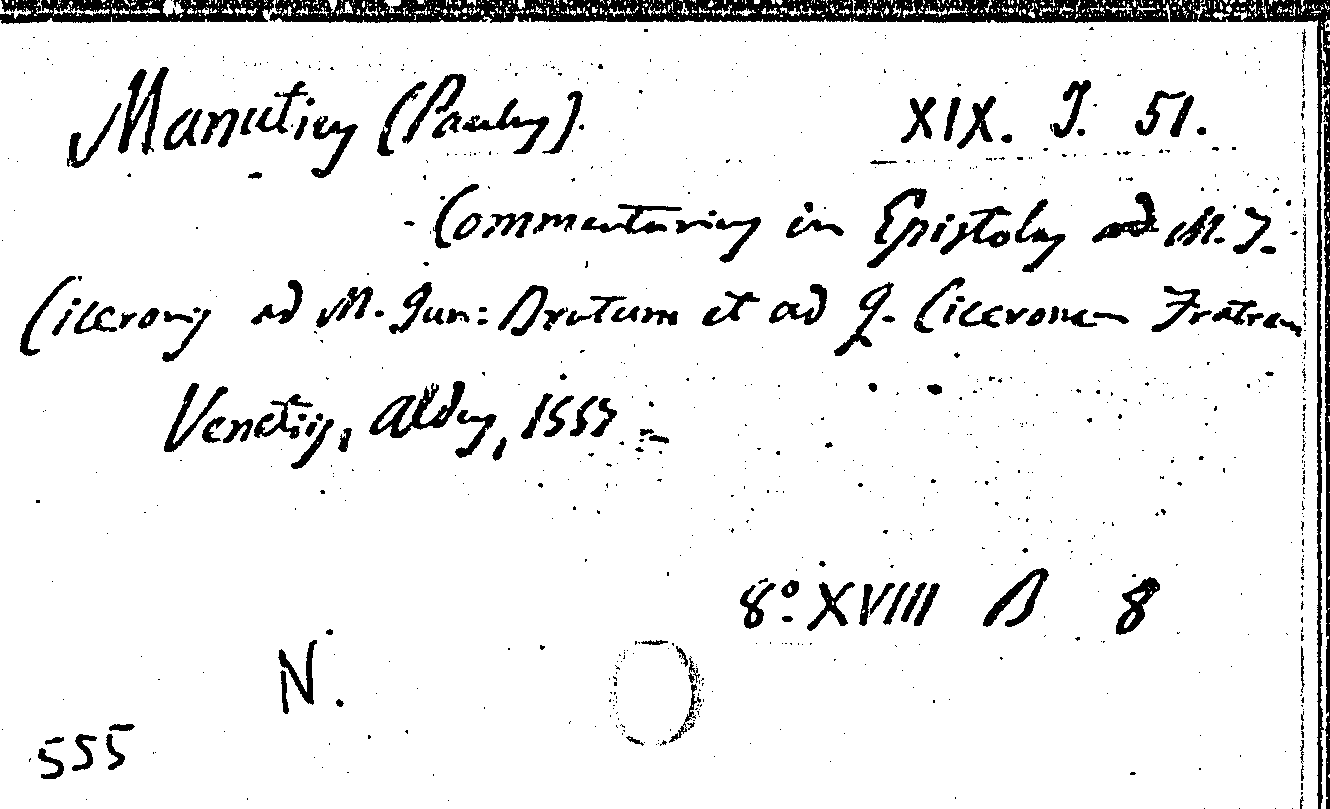 Manutius (Paulus). XIX. J. 51.
- Commentarius in Epistolas ad M. T.
Ciceronis ad M. Jun: Brutum et ad Q. Ciceronem Fratrem
Venetiis, Aldus, 1557
8º. XVIII B 8
N.
555